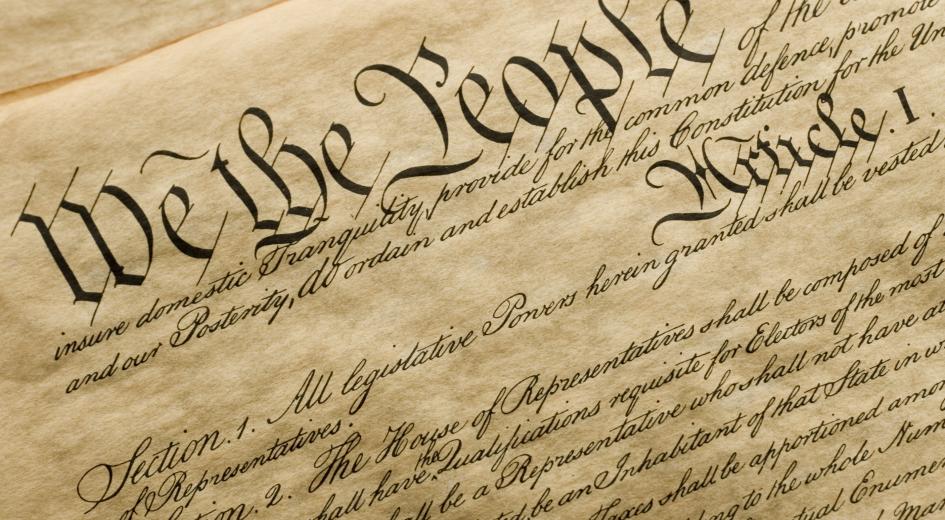 We the People of the
insure domestic Tranquility, provide for the common defence, promote
and our Posterity, do ordain and establish this Constitution for the Un
Article. I.
Section. 1. All legislative Powers herein granted shall be vested
of Representatives.
tion. 2. The House of Representatives shall be composed of
hall have the Qualifications requisite for Electors of the most
ll be a Representative who shall not have
d, be an Inhabitant of that State in w
axes shall be apportioned amon
ng to the whole Num
tual Enumer